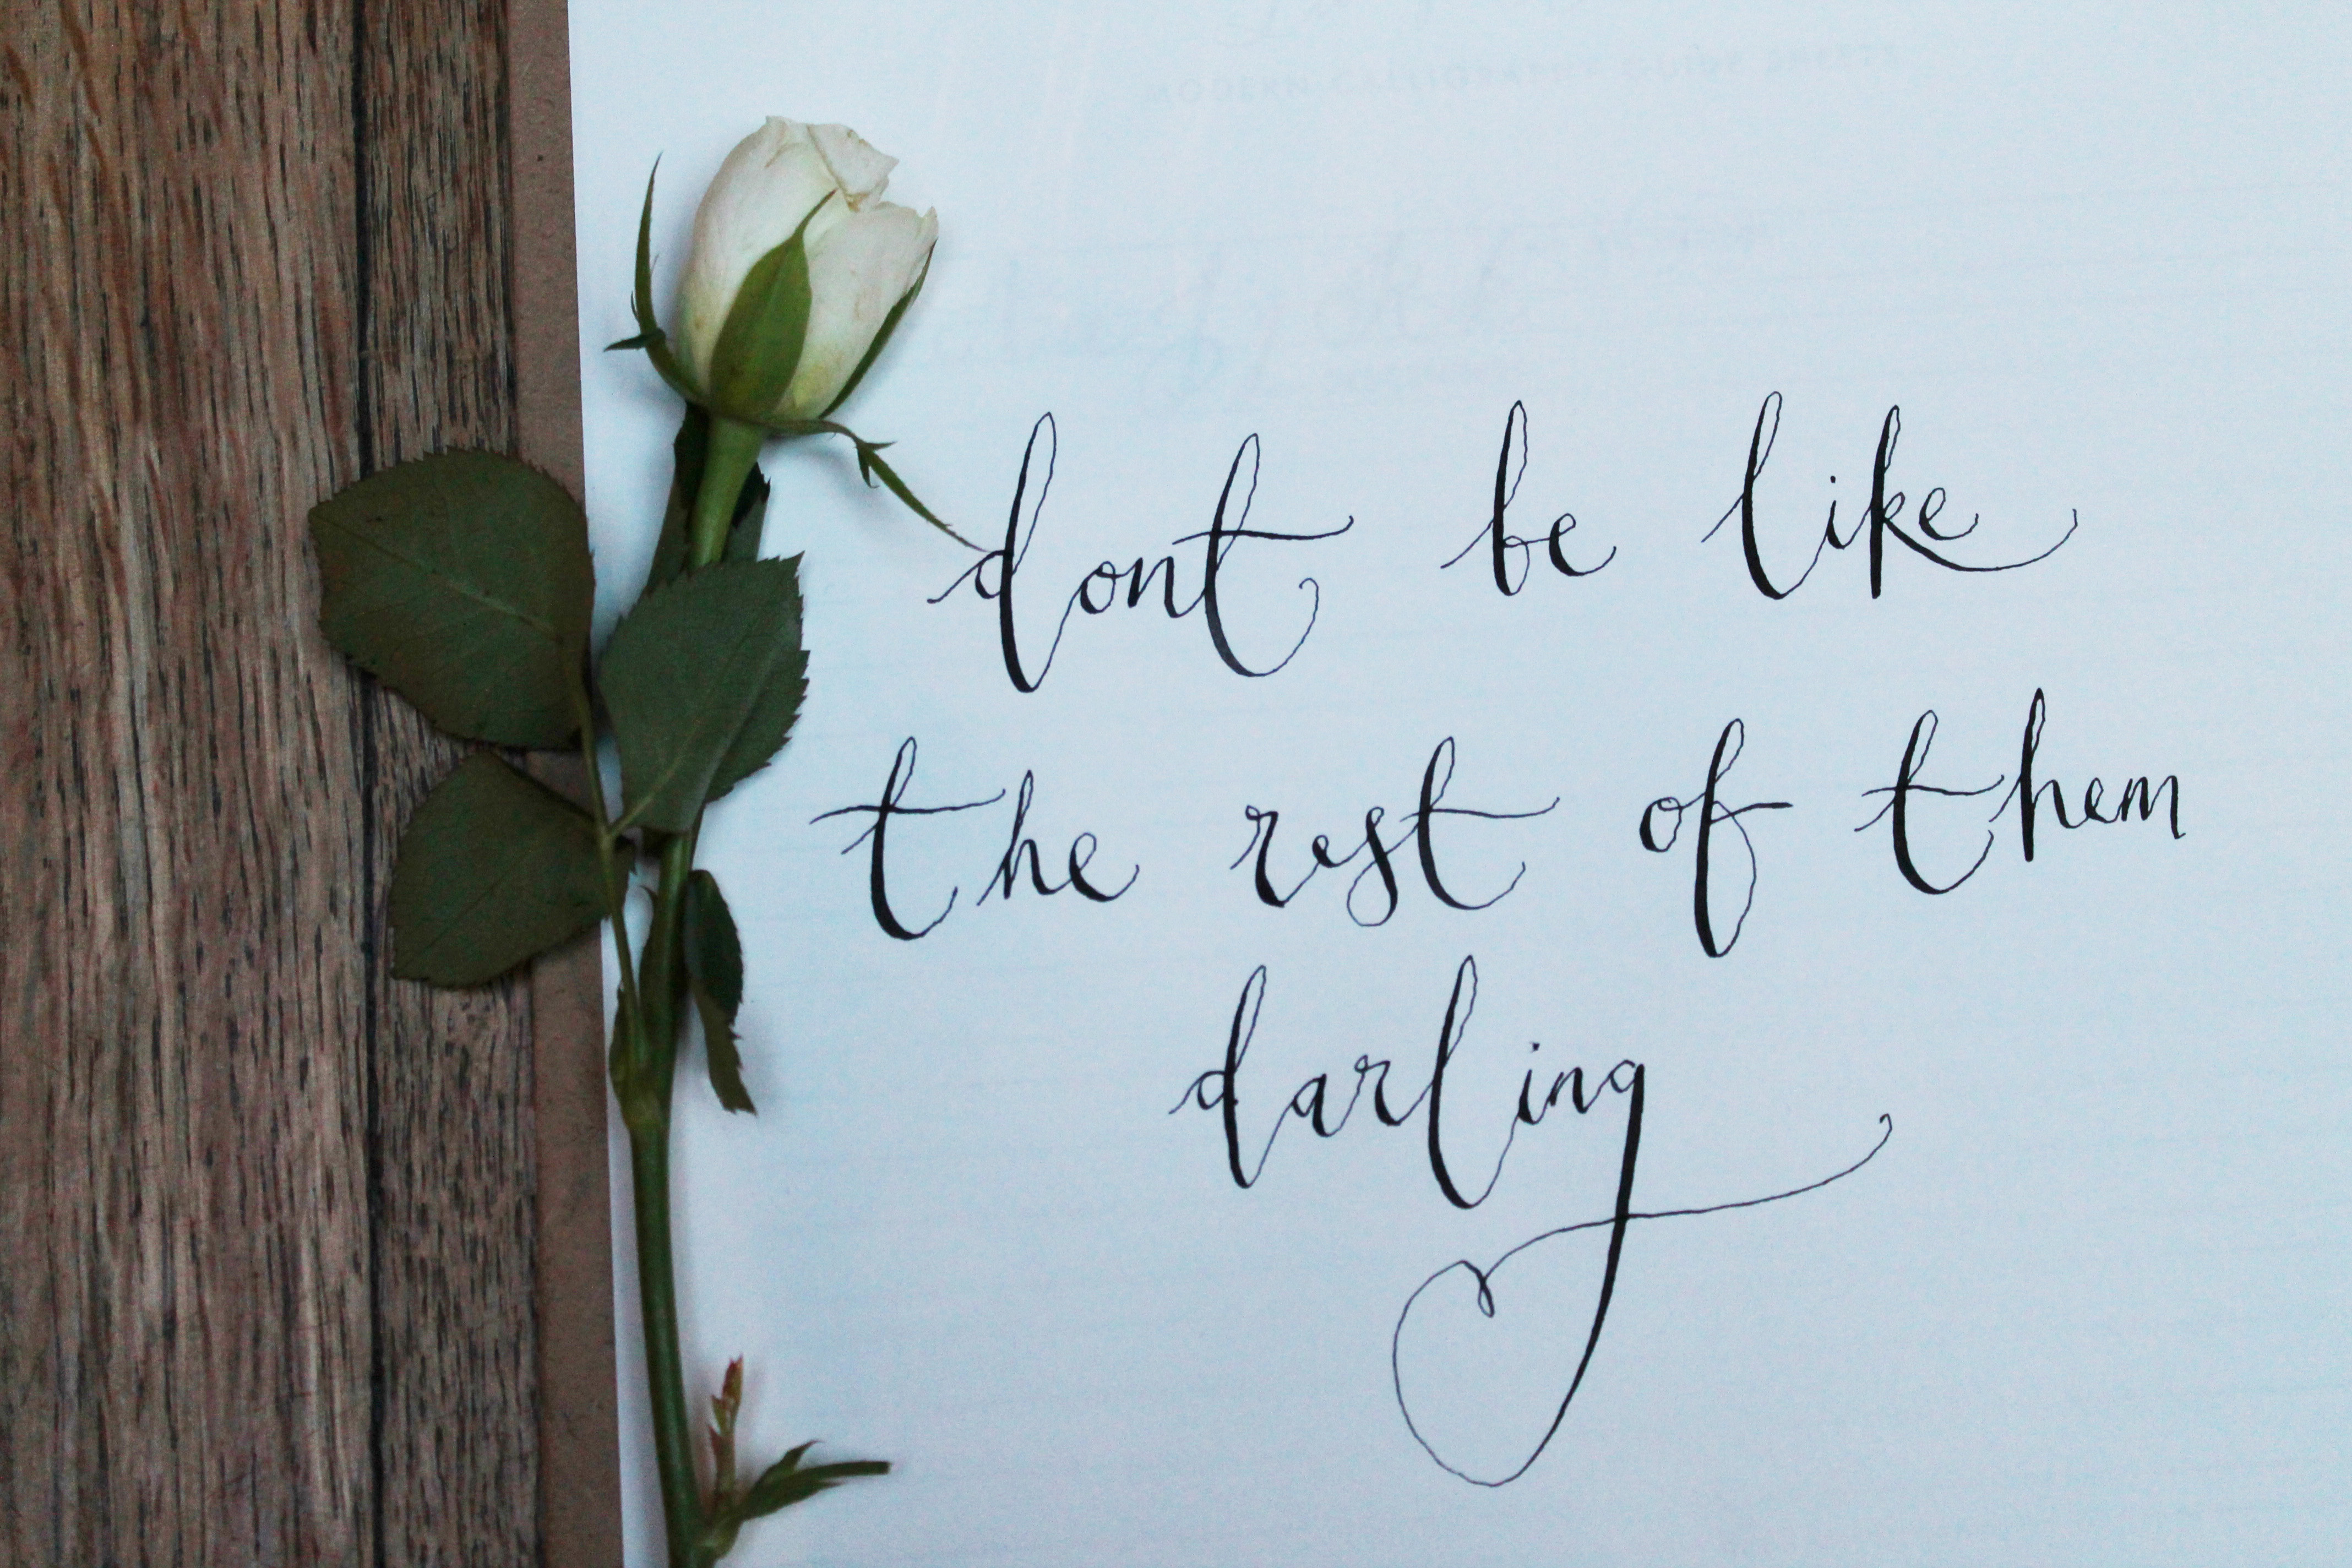 MODERN CALLIGRAPHY GUIDE SHEETS
dont be like
the rest of them
darling